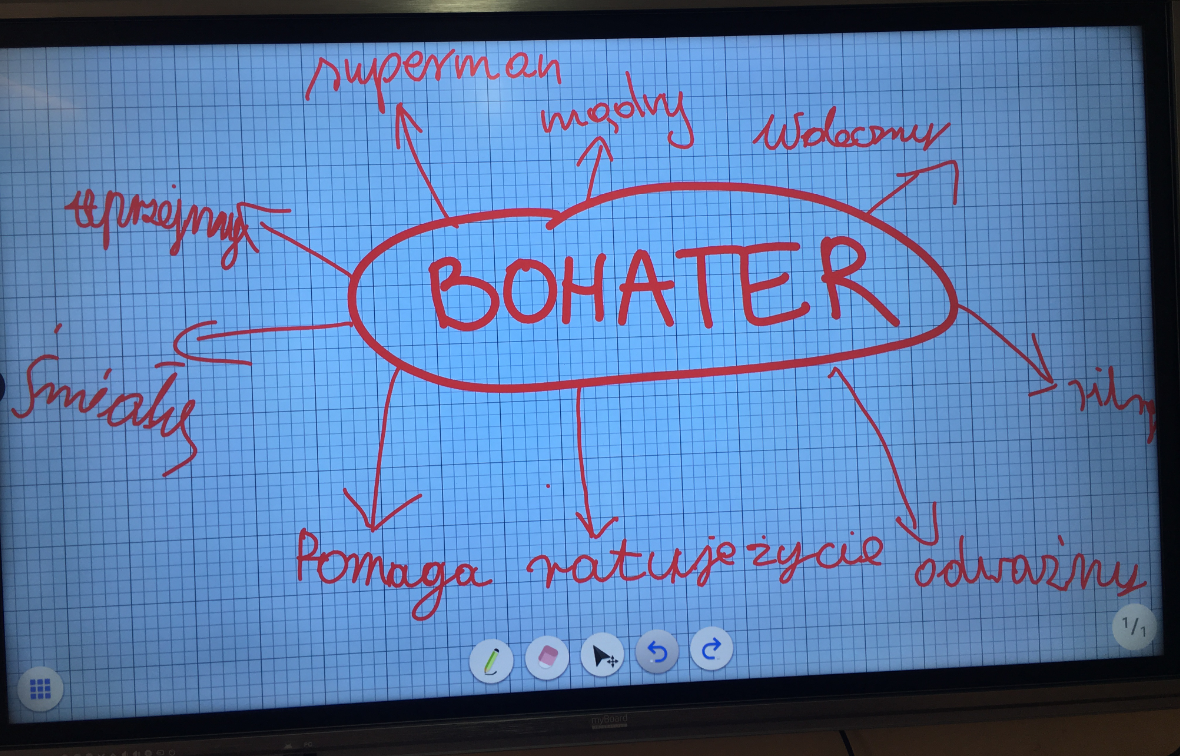 superman
mądry
Waleczny
uprzejmy
BOHATER
Śmiały
silny
Pomaga
ratuje życie
odważny
1/1
myBoard